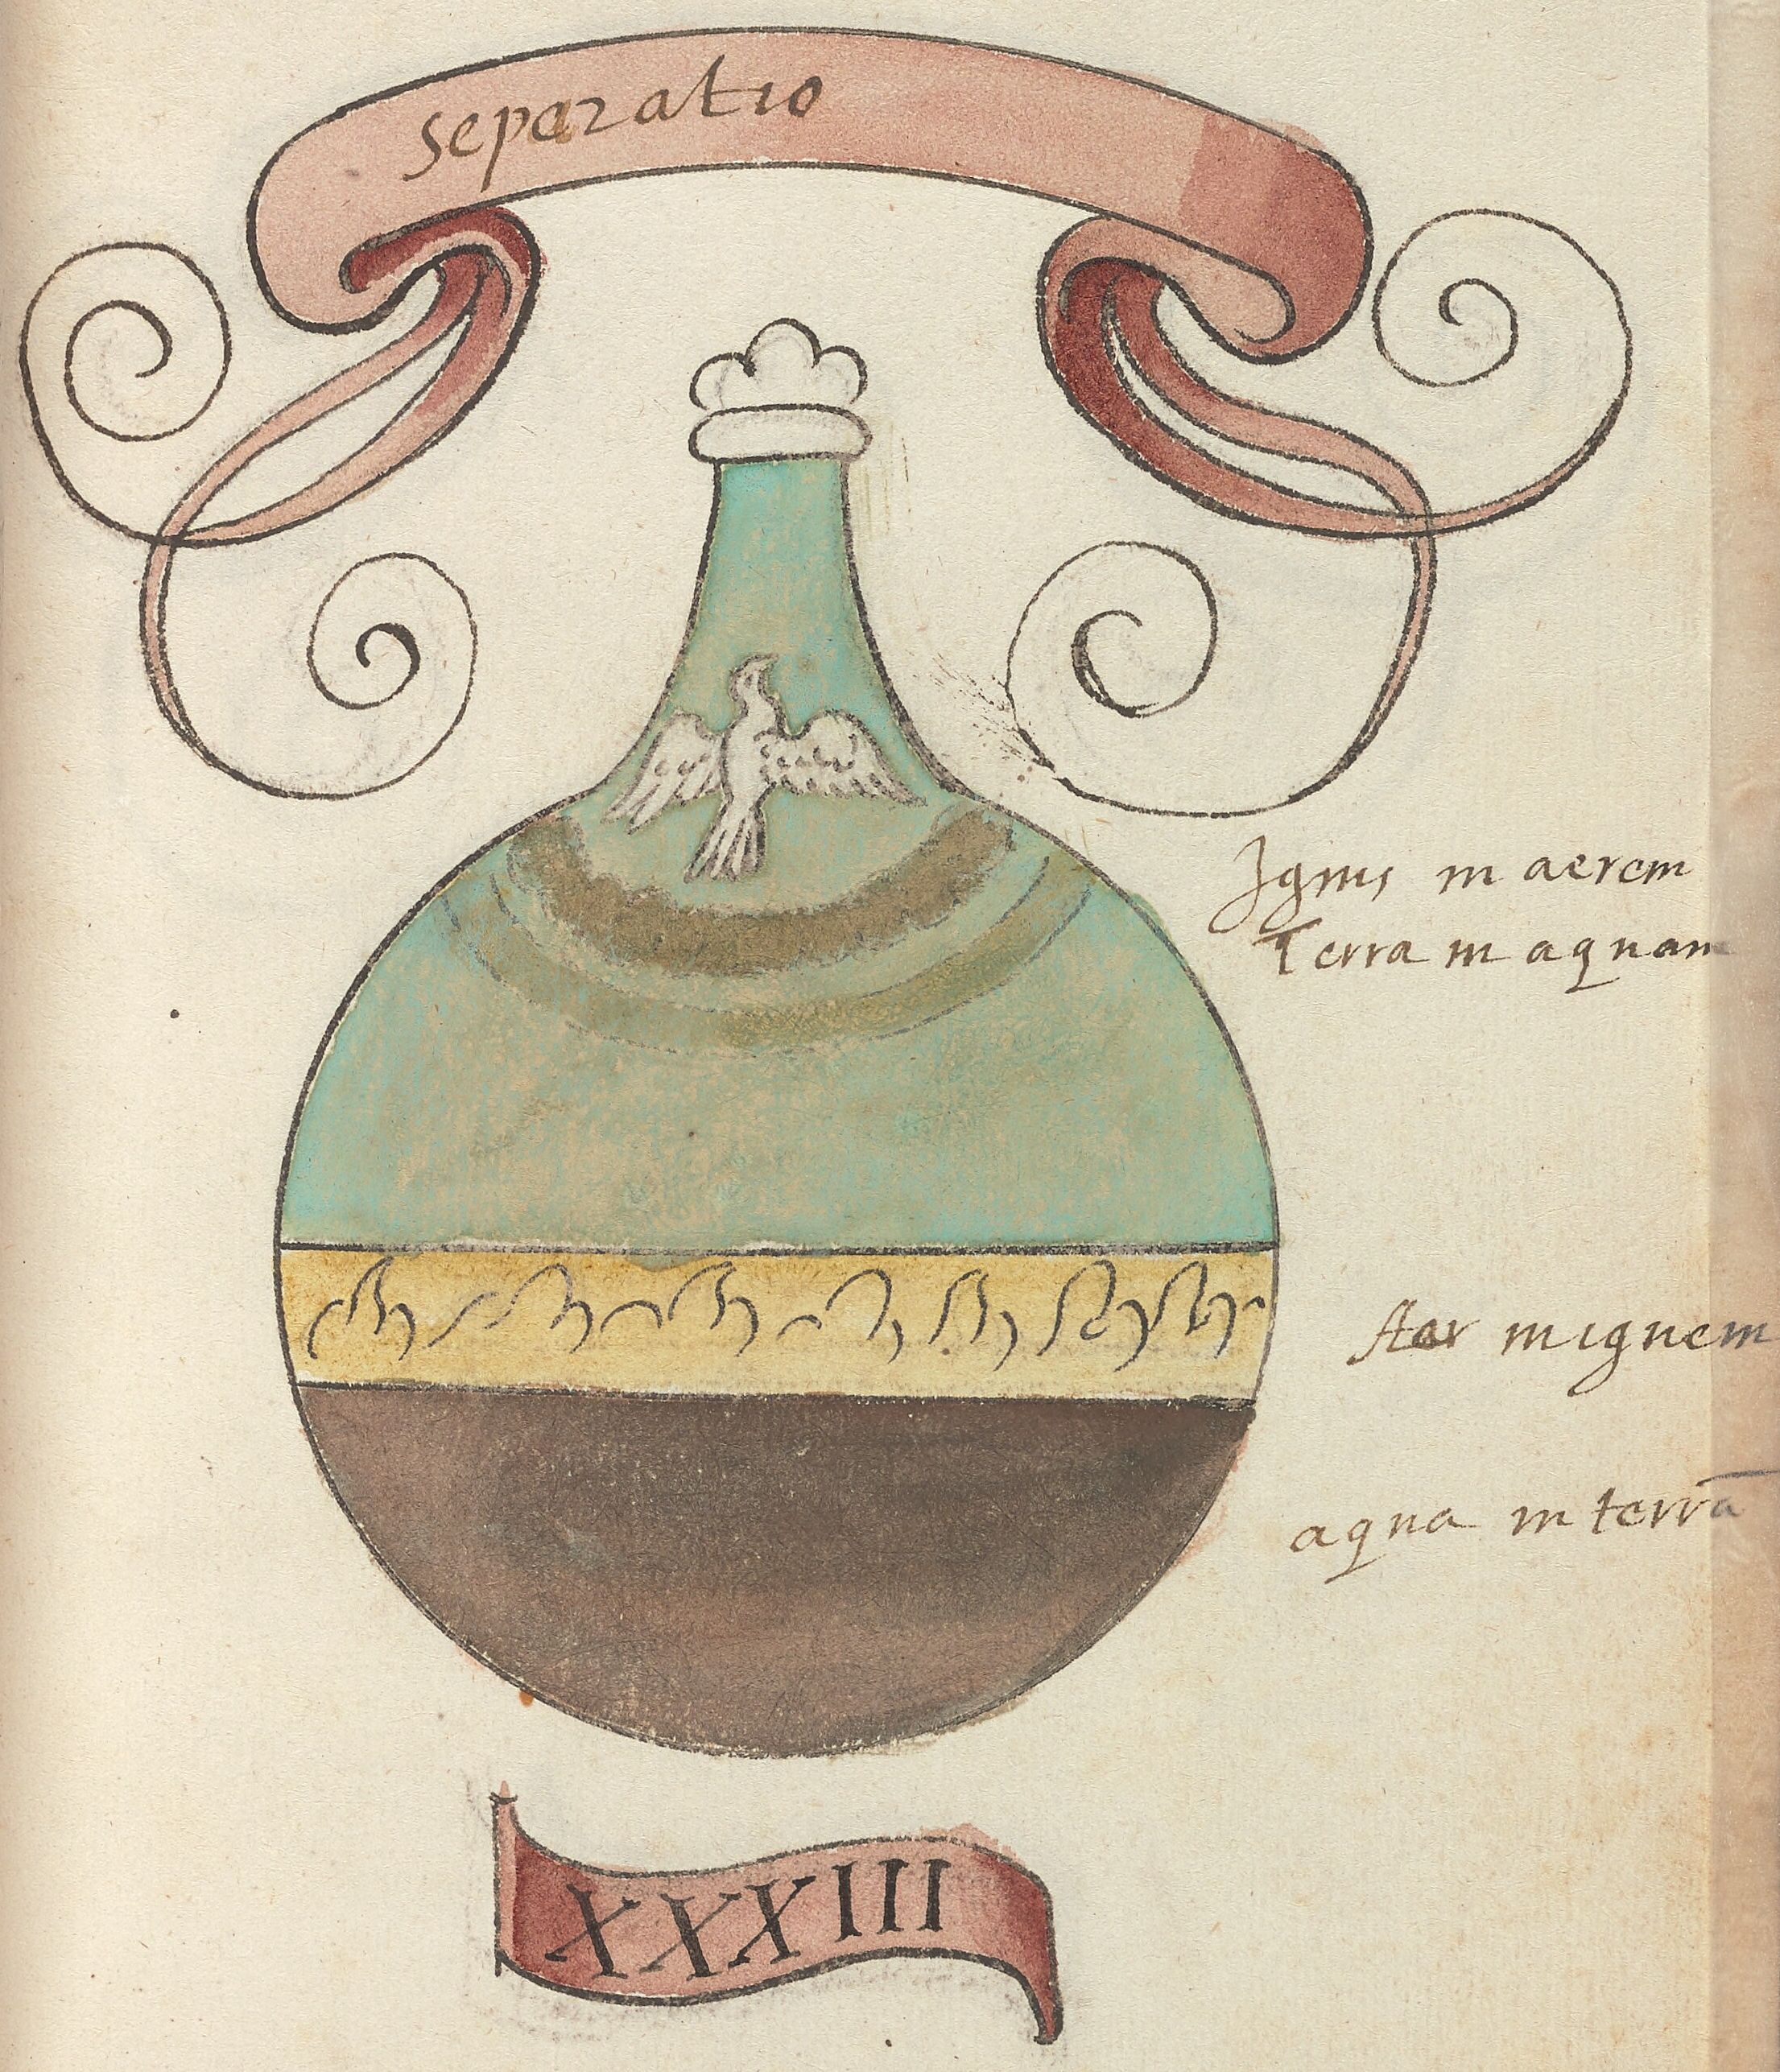 separatio
Ignis in aerem
Terra in aquam
Aer in ignem
aqua in terrā
XXXIII